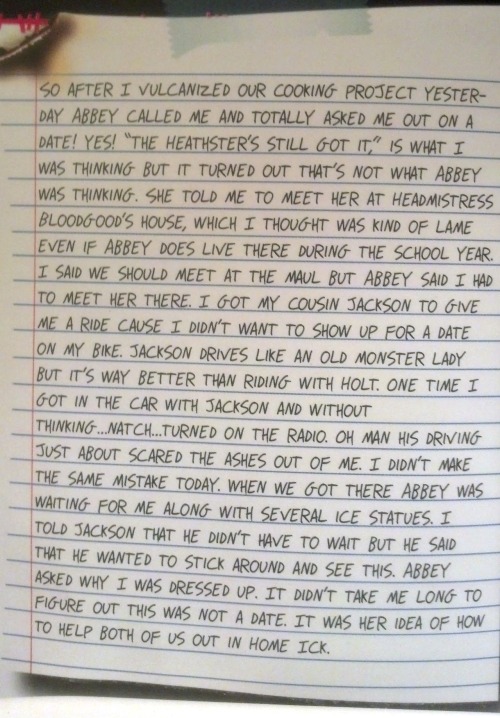 SO AFTER I VULCANIZED OUR COOKING PROJECT YESTER-
DAY ABBEY CALLED ME AND TOTALLY ASKED ME OUT ON A
DATE! YES! "THE HEATHSTER'S STILL GOT IT," IS WHAT I
WAS THINKING BUT IT TURNED OUT THAT'S NOT WHAT ABBEY
WAS THINKING. SHE TOLD ME TO MEET HER AT HEADMISTRESS
BLOODGOOD'S HOUSE, WHICH I THOUGHT WAS KIND OF LAME
EVEN IF ABBEY DOES LIVE THERE DURING THE SCHOOL YEAR.
I SAID WE SHOULD MEET AT THE MAUL BUT ABBEY SAID I HAD
TO MEET HER THERE. I GOT MY COUSIN JACKSON TO GIVE
ME A RIDE CAUSE I DIDN'T WANT TO SHOW UP FOR A DATE
ON MY BIKE. JACKSON DRIVES LIKE AN OLD MONSTER LADY
BUT IT'S WAY BETTER THAN RIDING WITH HOLT. ONE TIME I
GOT IN THE CAR WITH JACKSON AND WITHOUT
THINKING...NATCH...TURNED ON THE RADIO. OH MAN HIS DRIVING
JUST ABOUT SCARED THE ASHES OUT OF ME. I DIDN'T MAKE
THE SAME MISTAKE TODAY. WHEN WE GOT THERE ABBEY WAS
WAITING FOR ME ALONG WITH SEVERAL ICE STATUES. I
TOLD JACKSON THAT HE DIDN'T HAVE TO WAIT BUT HE SAID
THAT HE WANTED TO STICK AROUND AND SEE THIS. ABBEY
ASKED WHY I WAS DRESSED UP. IT DIDN'T TAKE ME LONG TO
FIGURE OUT THIS WAS NOT A DATE. IT WAS HER IDEA OF HOW
TO HELP BOTH OF US OUT IN HOME ICK.